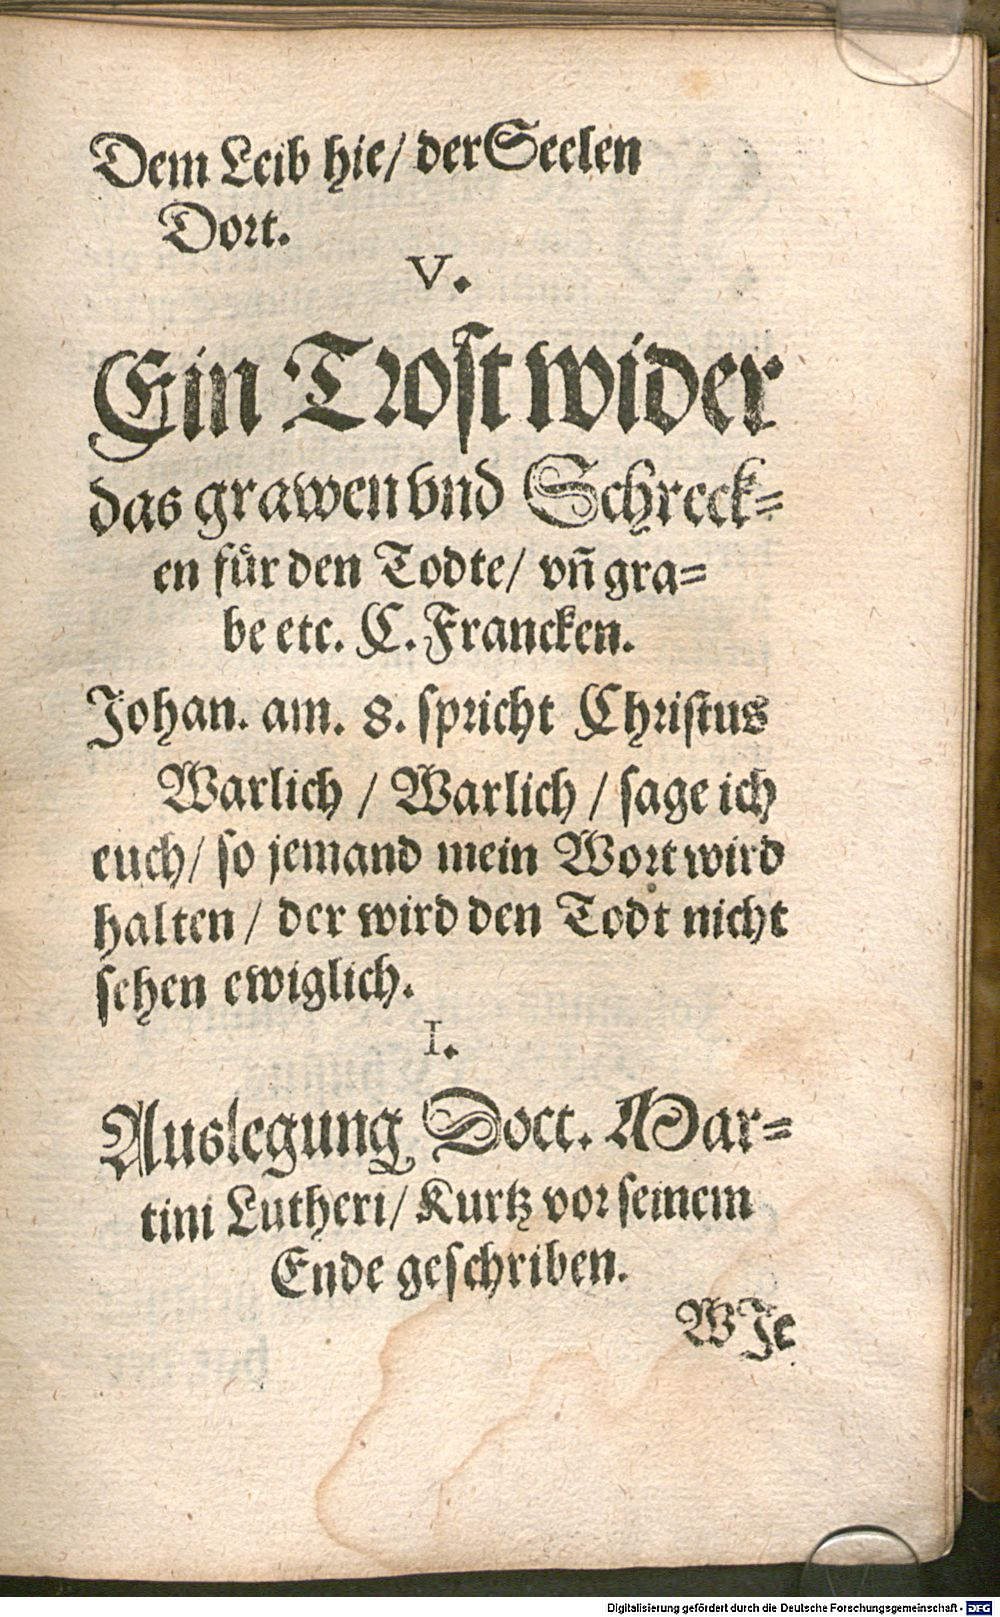 Dem Leib hie/ der Seelen
Dort.
V.
Ein Trost wider
das grawen vnd Schreck-
en für den Todte/ vñ gra-
be etc. C. Francken.
Johan. am. 8. spricht Christus
Warlich / Warlich / sage ich
euch/ so jemand mein Wort wird
halten / der wird den Todt nicht
sehen ewiglich.
I.
Auslegung Doct. Mar-
tini Lutheri/ Kurtz vor seinem
Ende geschriben.
WJe
Digitalisierung gefördert durch die Deutsche Forschungsgemeinschaft - DFG